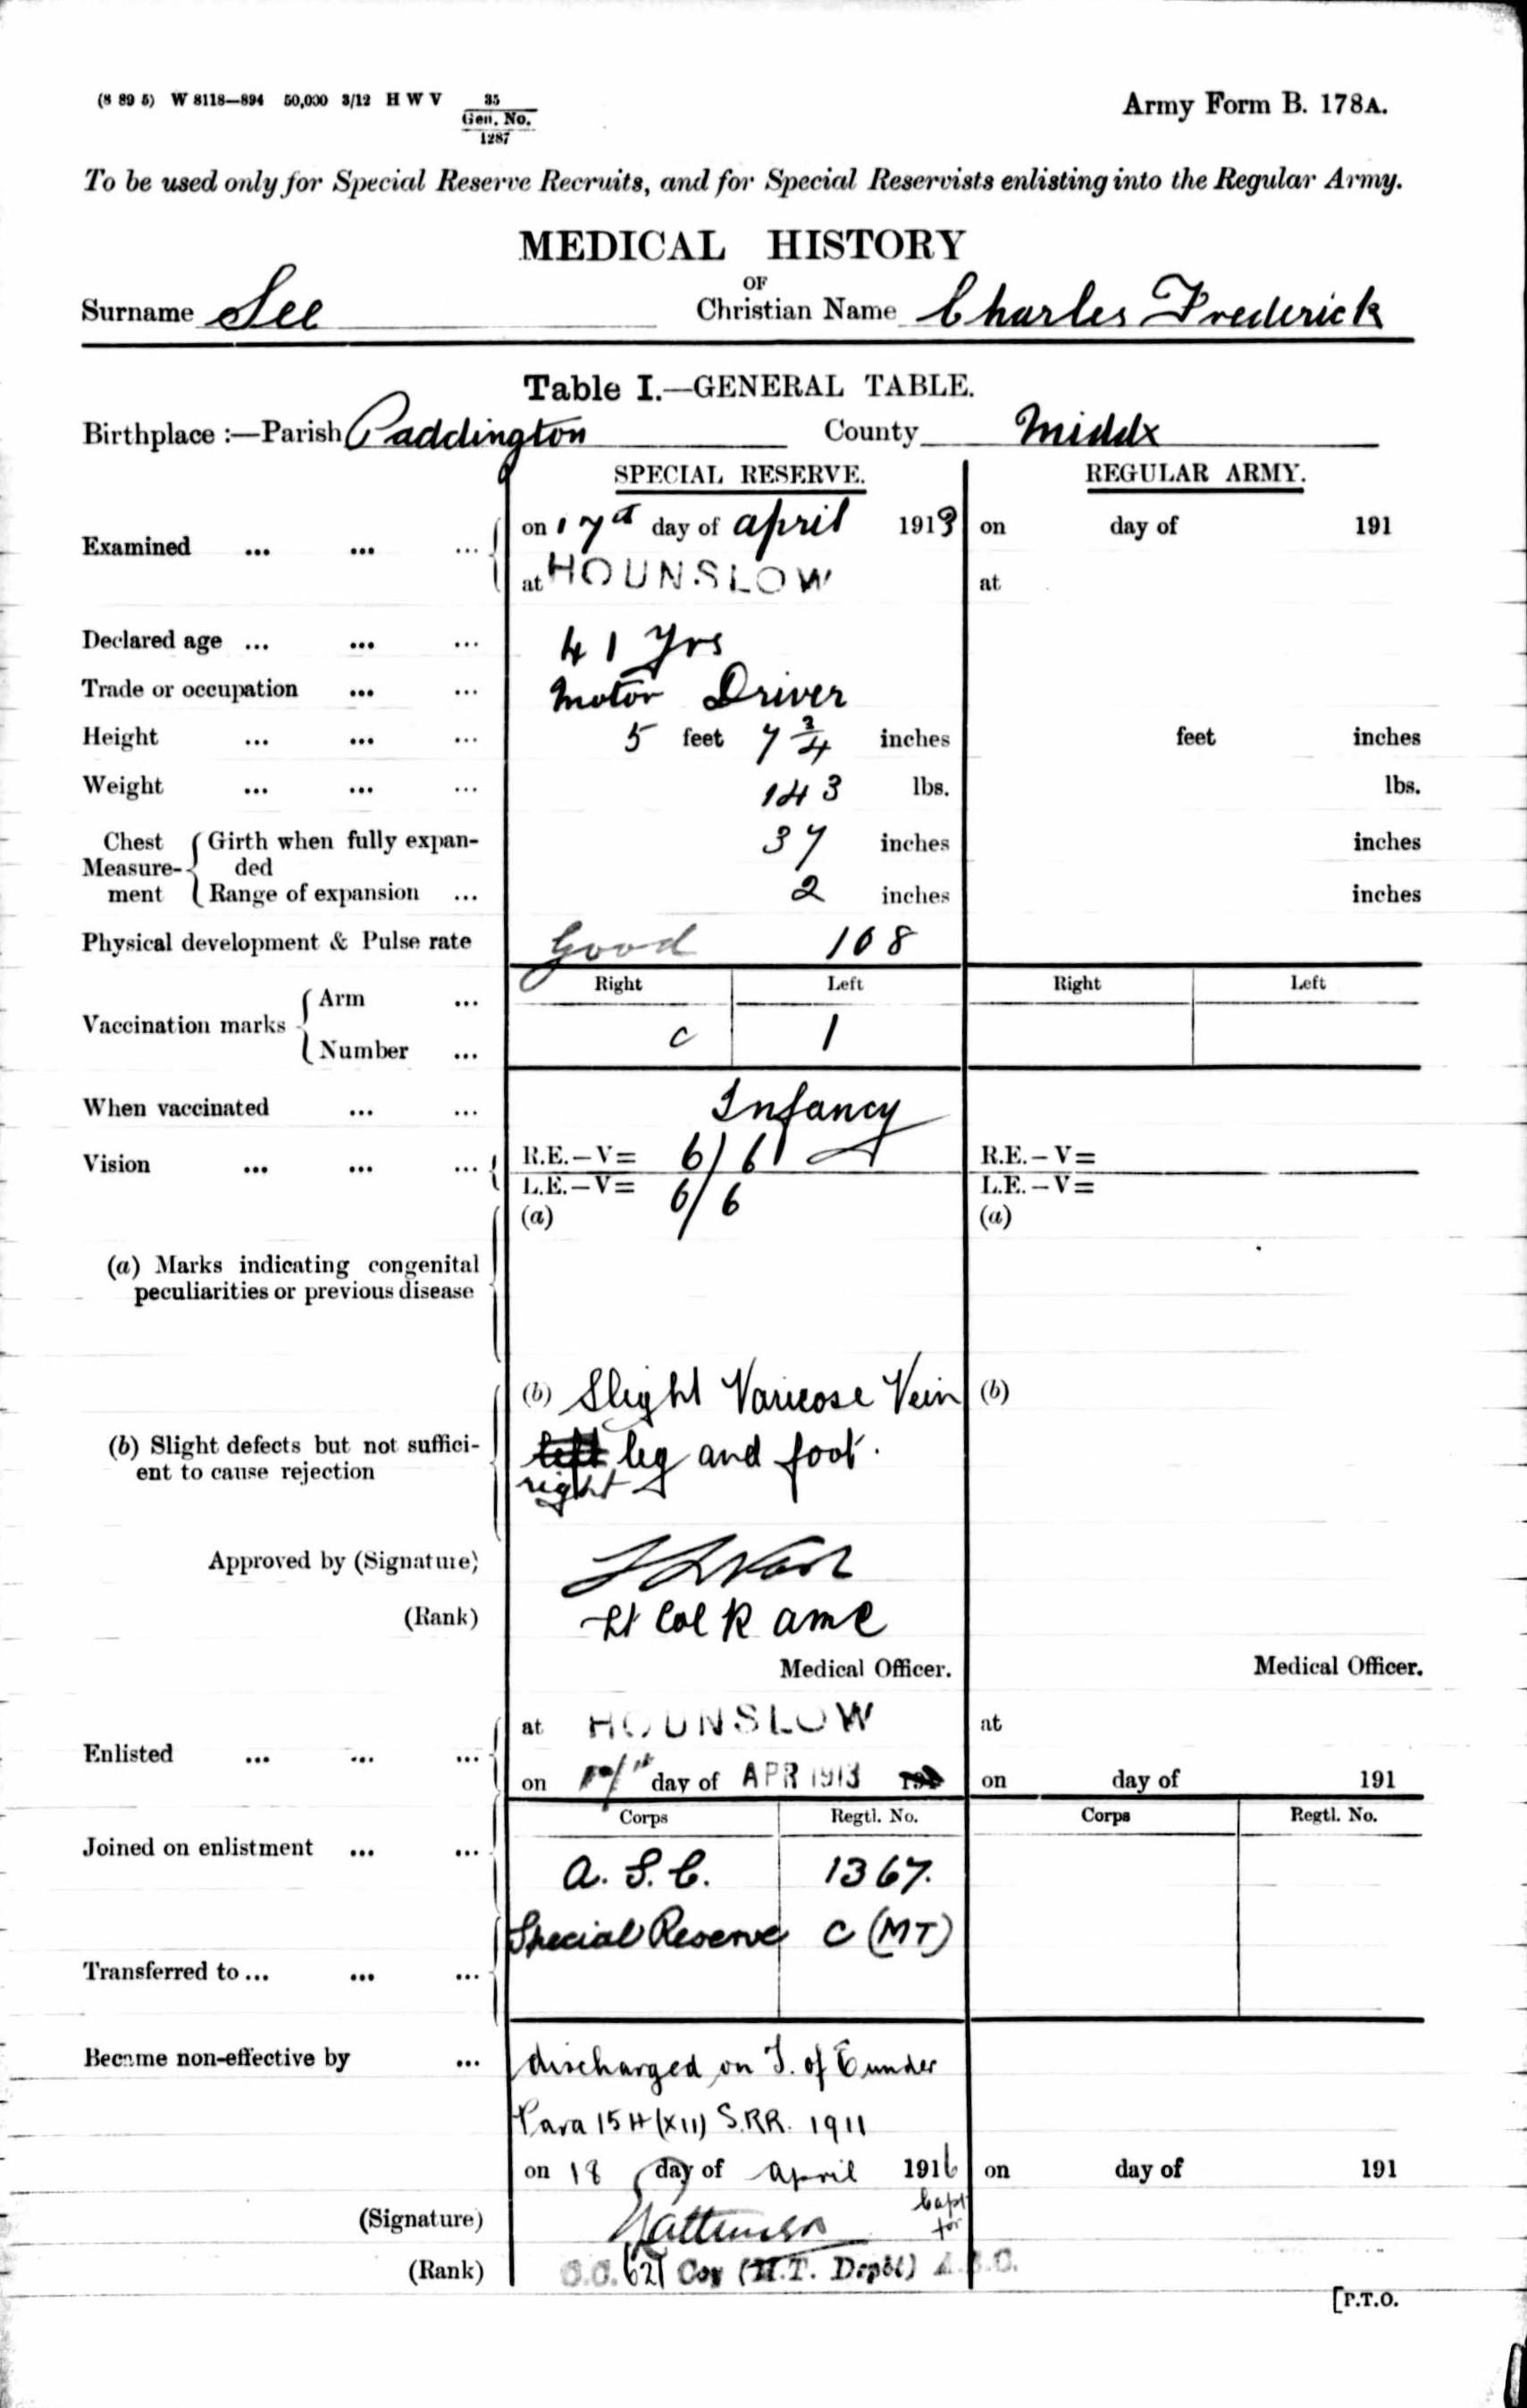 (8 89 5) W 8118—894 50,000 3/12 H W V 35
Gen. No.
1287
Army Form B. 178A.
To be used only for Special Reserve Recruits, and for Special Reservists enlisting into the Regular Army.
MEDICAL HISTORY
OF
Surname See Christian Name Charles Frederick
Table I.—GENERAL TABLE.
Birthplace :—Parish Paddington County Middx
SPECIAL RESERVE. REGULAR ARMY.
Examined ... ... ... on 17th day of april 1913 on day of 191
at HOUNSLOW at
Declared age ... ... ... 41 Yrs
Trade or occupation ... ... Motor Driver
Height ... ... ... 5 feet 7 3/4 inches feet inches
Weight ... ... ... 143 lbs. lbs.
Chest Measurement { Girth when fully expanded 37 inches inches
Range of expansion ... 2 inches inches
Physical development & Pulse rate Good 108
Right Left Right Left
Vaccination marks { Arm ...
Number ... c 1
When vaccinated ... ... Infancy
Vision ... ... ... R.E.—V= 6/6 R.E.—V=
L.E.—V= 6/6 L.E.—V=
(a) (a)
(a) Marks indicating congenital
peculiarities or previous disease
(b) Slight Varicose Vein (b)
(b) Slight defects but not suffici-
ent to cause rejection
left leg and foot.
right
Approved by (Signature)
(Rank) Lt Col R amc
Medical Officer. Medical Officer.
Enlisted ... ... ... at HOUNSLOW at
on day of APR 1913 on day of 191
Corps Regtl. No. Corps Regtl. No.
Joined on enlistment ... ... A. S. C. 1367.
Special Reserve C (MT)
Transferred to ... ... ...
Became non-effective by ... discharged on T. of E under
Para 154 (XII) S.R.R. 1911
on 18 day of April 1916 on day of 191
(Signature) Capt
for
(Rank) O.C. 621 Coy (M.T. Depôt) A.S.C.
[P.T.O.